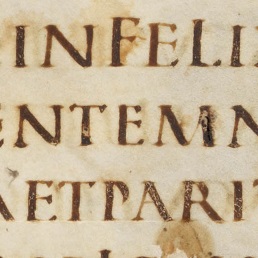 INFELI
ENTEMN
AETPARIT